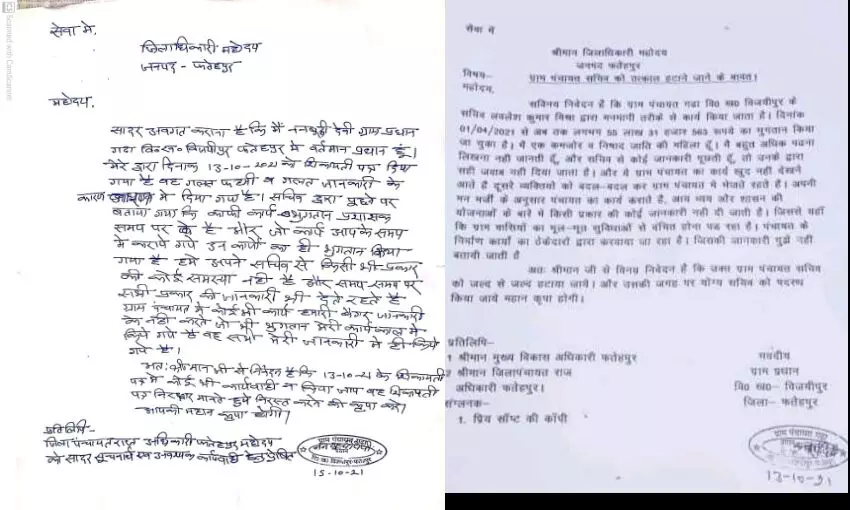 सेवा मे,
जिलाधिकारी महोदय
जनपद - फतेहपुर
महोदय,
सादर अवगत कराना है कि मैं ननबुट्टी देवी ग्राम प्रधान
गढा वि०ख० विजयीपुर फतेहपुर मे वर्तमान प्रधान हूँ।
मेरे द्वारा दिनांक 13-10-2021 को शिकायती पत्र दिया
गया है वह गलत फहमी व गलत जानकारी के
कारण मे दिया गया है। सचिव द्वारा पूछने पर
बताया गया कि काफी कार्य भुगतान प्रशासक
समय पर के है और जो कार्य आपके समय
मे कराये गये उन कार्यो का ही भुगतान किया
गया है हमे अपने सचिव से किसी भी प्रकार
की कोई समस्या नही है और समय-समय पर
सभी प्रकार की जानकारी भी देते रहते है
ग्राम पंचायत मे कोई भी कार्य हमारी बगैर जानकारी
के नही करते जो भी भुगतान मेरी कार्यकाल मे
किये गये है वह सभी मेरी जानकारी मे ही किये
गये है।
अतः श्रीमान जी से निवेदन है कि 13-10-21 के शिकायती
पत्र मे कोई भी कार्यवाही न किया जाय वह शिकायती
पत्र निराधार मानते हुये निरस्त करने की कृपा करे।
आपकी महान कृपा होगी।
प्रतिलिपि-
जिला पंचायत राज अधिकारी फतेहपुर महोदय
को सादर सूचनार्थ एवं आवश्यक कार्यवाही हेतु प्रेषित
15-10-21
सेवा में
श्रीमान जिलाधिकारी महोदय
जनपद फतेहपुर
विषय- ग्राम पंचायत सचिव को तत्काल हटाने जाने के बावत।
महोदय,
सविनय निवेदन है कि ग्राम पंचायत गढा वि० ख० विजयीपुर के
सचिव लवलेश कुमार मिश्रा द्वारा मनमानी तरीके से कार्य किया जाता है। दिनांक
01/04/2021 से अब तक लगभग 55 लाख 31 हजार 563 रूपये का भुगतान किया
जा चुका है। मै एक कमजोर व निषाद जाति की महिला हूँ। मै बहुत अधिक पढना
लिखना नही जानती हूँ, और सचिव से कोई जानकारी पूछती हूँ, तो उनके द्वारा
सही जवाब नही दिया जाता है। और ये ग्राम पंचायत का कार्य खुद नही देखने
आते है दूसरे व्यक्तियो को बदल-बदल कर ग्राम पंचायत मे भेजते रहते है। अपनी
मन मर्जी के अनुसार पंचायत का कार्य कराते है, आय व्यय और शासन की
योजनाओ के बारे मे किसी प्रकार की कोई जानकारी नही दी जाती है। जिससे यहाँ
कि ग्राम वासियों का मूल-भूत सुविधाओ से वंचित होना पड रहा है। पंचायत के
निर्माण कार्यो का ठेकेदारो द्वारा करवाया जा रहा है। जिसकी जानकारी मुझे नही
बतायी जाती है
अतः श्रीमान जी से विनय निवेदन है कि उक्त ग्राम पंचायत सचिव
को जल्द से जल्द हटाया जाये। और उसकी जगह पर योग्य सचिव को पदस्थ
किया जाये महान कृपा होगी।
प्रतिलिपि-
1 श्रीमान मुख्य विकास अधिकारी फतेहपुर
2 श्रीमान जिलापंचायत राज
अधिकारी फतेहपुर।
संलगनक-
1. प्रिय सॉफ्ट की कॉपी
भवदीय
ग्राम प्रधान
वि० ख०- विजयीपुर
जिला- फतेहपुर
13-10-21
Scanned with CamScanner